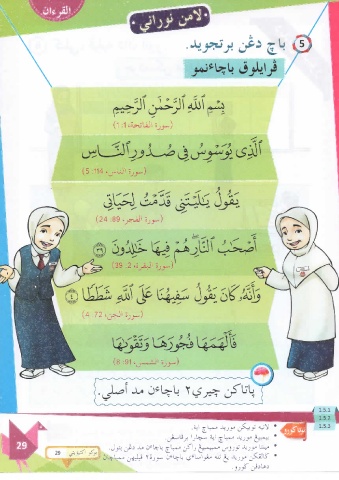 القرءان
لامن نوراني
5 باچ دڠن برتجويد.
ڤرايلوق باچاءنمو
بِسْمِ ٱللَّهِ ٱلرَّحْمَٰنِ ٱلرَّحِيمِ
(سورة الفاتحة، 1: 1)
ٱلَّذِي يُوَسْوِسُ فِي صُدُورِ ٱلنَّاسِ
(سورة الناس، 114: 5)
يَقُولُ يَٰلَيْتَنِي قَدَّمْتُ لِحَيَاتِي
(سورة الفجر، 89: 24)
أَصْحَٰبُ ٱلنَّارِ هُمْ فِيهَا خَٰلِدُونَ
(سورة البقرة، 2: 39)
وَأَنَّهُۥ كَانَ يَقُولُ سَفِيهُنَا عَلَى ٱللَّهِ شَطَطًا ٤
(سورة الجن، 72: 4)
فَأَلْهَمَهَا فُجُورَهَا وَتَقْوَىٰهَا
(سورة الشمس، 91: 8)
ڽاتاكن چيري٢ باچاءن مد أصلي.
1.5.1
1.5.2
1.5.3
29